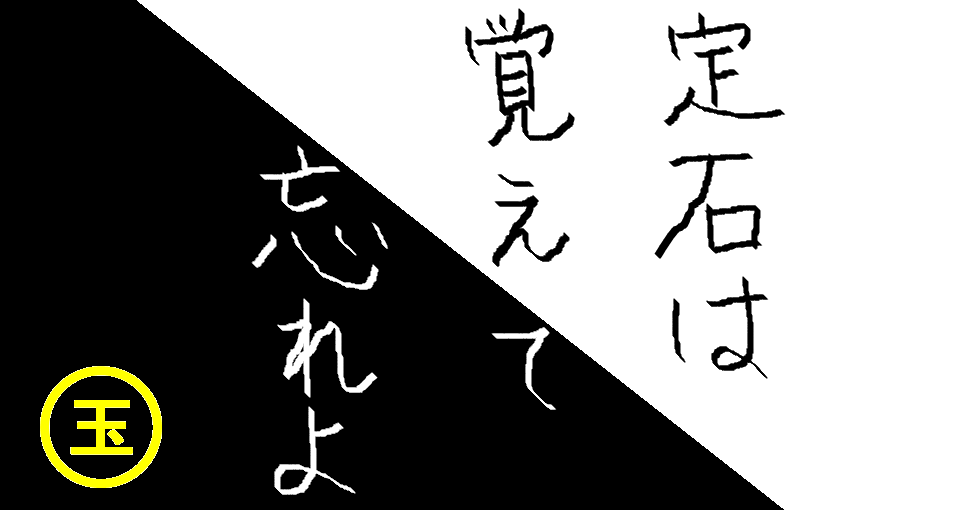 定石は
覚えて
忘れよ
玉